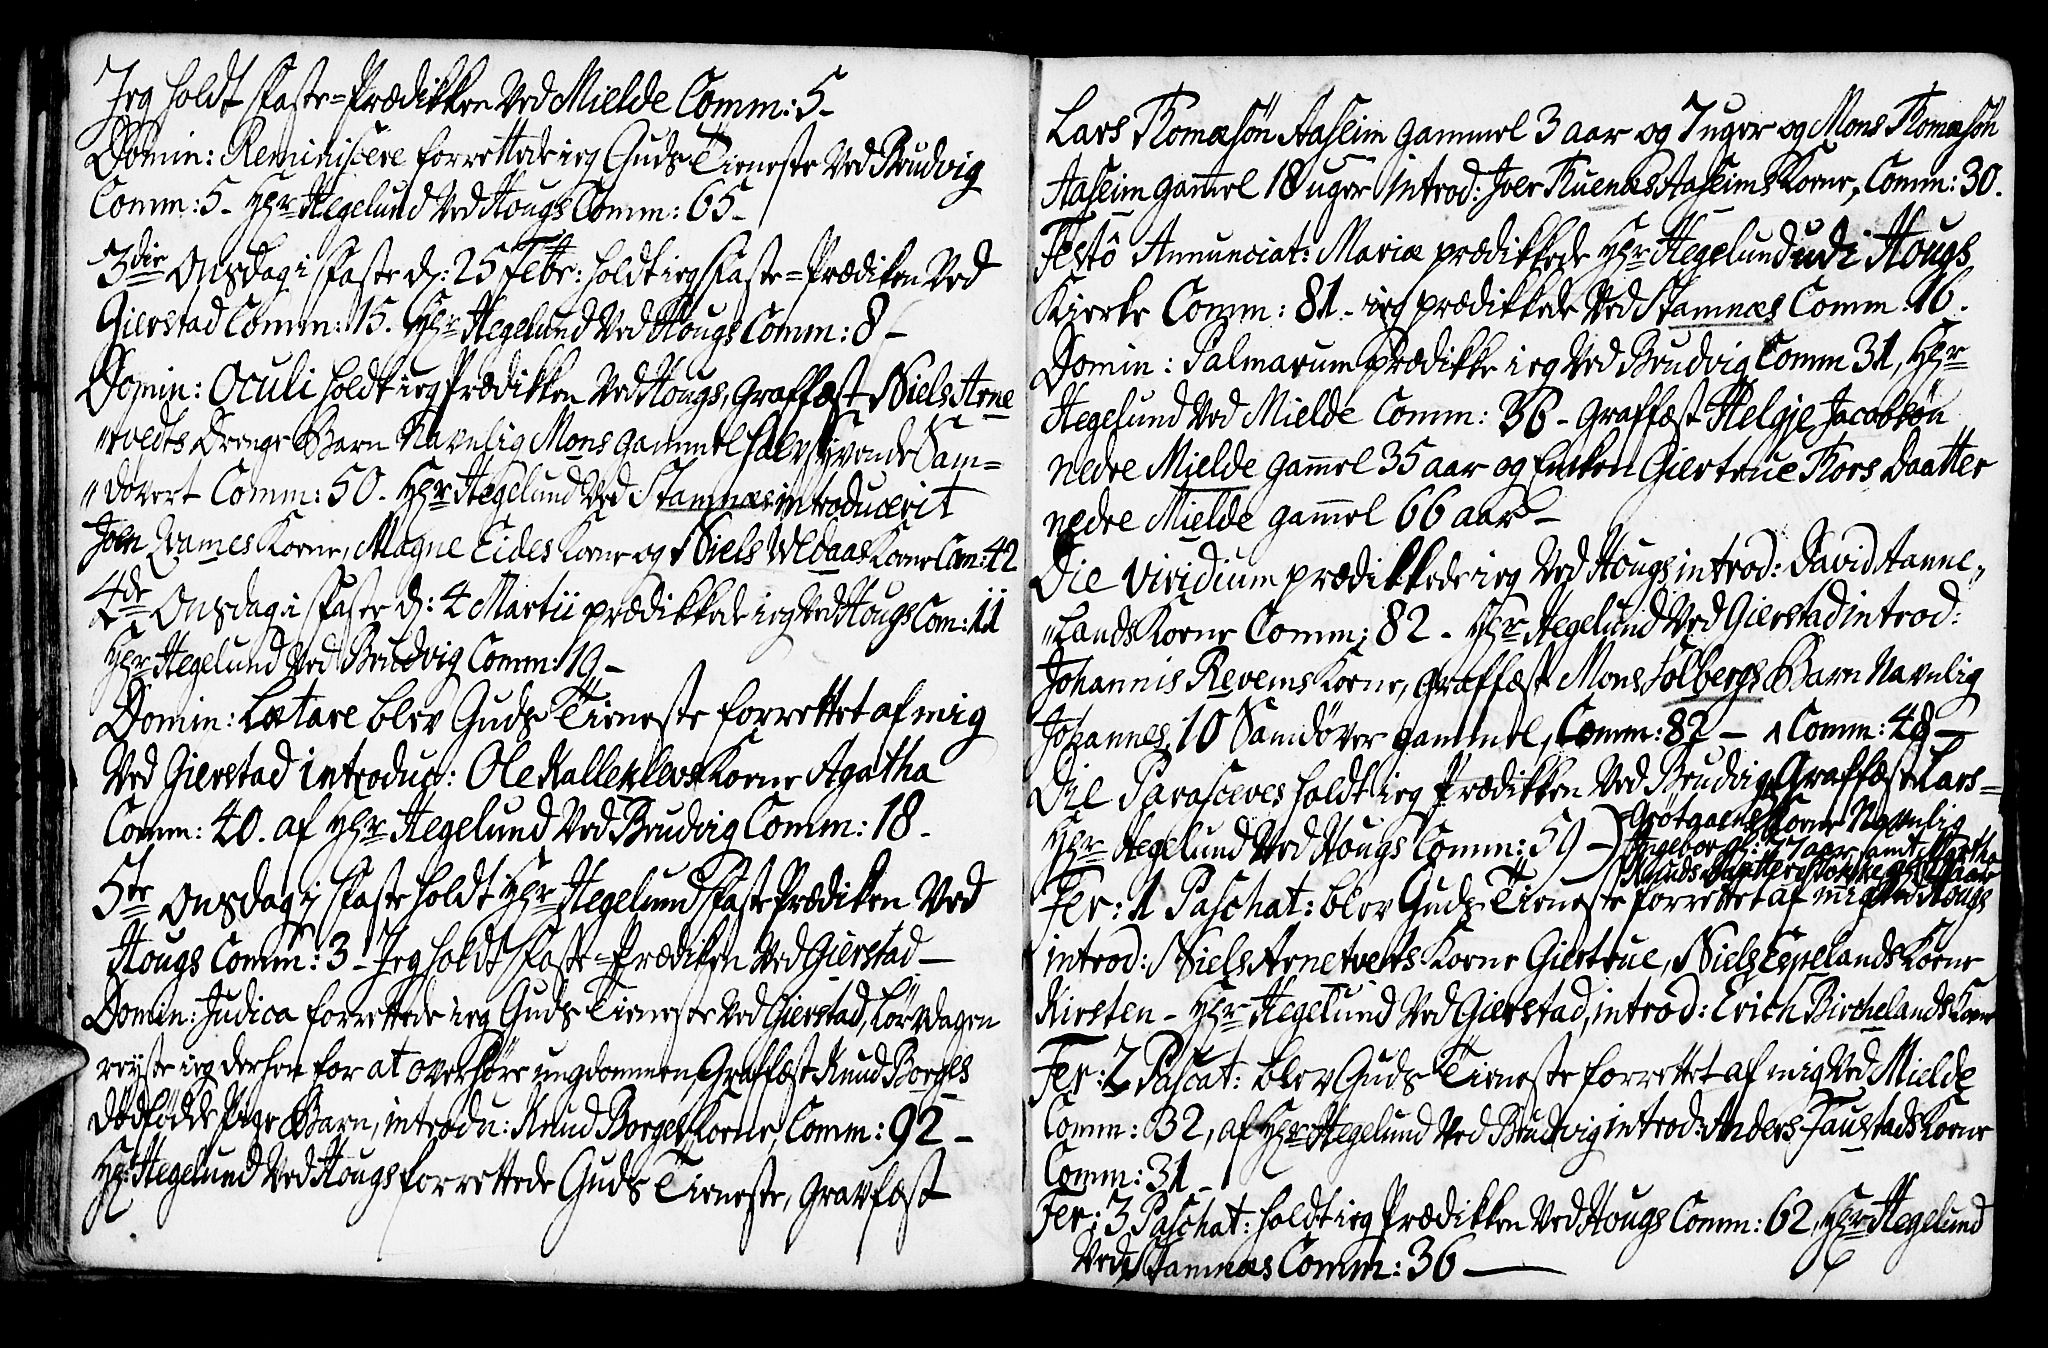 Jeg holdt Faste=Prædikken Ved Mielde Comm: 5-
Domin: Reminiscere forrettede ieg Guds Tieneste Ved Brudvig
Comm: 5- Hr Hegelund Ved Hougs Comm: 65-
3die Onsdag i Faste d: 25 Febr: holdt ieg Faste=Prædiken Ved
Gierstad Comm: 15. Hr Hegelund Ved Hougs Comm: 8-
Domin: Oculi holdt ieg Prædikken Ved Hougs, Graffæst Niels Arne
"tvedts Drenge Barn Navnlig Mons gammel halv Syvende Sam=
"døvert Comm: 50. Hr Hegelund Ved Stamnæs introducerit
Joen Qvames Kone, Magne Eides Kone og Niels Vedaas Kone Com: 42
4de Onsdag i Faste d: 4 Martii prædikkede ieg Ved Hougs Com: 11
Hr Hegelund Ved Brudvig Comm: 19-
Domin: Lætare blev Guds Tieneste forrettet af mig
Ved Gierstad introduc: Ole Kalleklevs Kone Agatha
Comm: 40. af Hr Hegelund Ved Brudvig Comm: 18-
5te Onsdag i Faste holdt Hr Hegelund Faste Prædiken Ved
Hougs Comm: 3- Jeg holdt Faste=Prædiken Ved Gierstad-
Domin: Judica forrettede ieg Guds Tieneste Ved Gierstad, Lørdagen
reyste ieg derhen for at overhøre ungdommen, Graffæst Knud Borges
dødfødde Pige Barn, introdu: Knud Borges Kone, Comm: 92-
Hr: Hegelund Ved Hougs forrettede Guds Tieneste, Gravfæst
Lars Thomæsøn Aaseim gammel 3 aar og 7 uger og Mons Thomæsøn
Aaseim gammel 18 uger introd: Joer Aaseims Kone, Comm: 30.
Festô Annunciat: Mariæ prædikkede Hr Hegelund udi Hougs
Kierke Comm: 81- ieg prædikkede Ved Stamnæs Comm: 16.
Domin: Palmarum Prædikke ieg Ved Brudvig Comm 31, Hr
Hegelund Ved Mielde Comm: 36- Graffæst Helgje Jacobsøn
nedre Mielde gammel 35 aar og Enken Giertrue Thors Daatter
nedre Mielde gammel 66 aar-
Die Viridium prædikkede ieg Ved Hougs introd: David Aanne,,
"lands Kone Comm: 82- Hr Hegelund Ved Gierstad introd:
Johannis Revems Kone, Graffæst Mons Solbergs Barn Navnlig
Johannes, 10 Samdøver gammel, Comm: 82- Comm: 48-
Die Parasceves holdt ieg Prædikken Ved Brudvig, Graffæst Lars-
Hr Hegelund Ved Hougs Comm: 59-
Grøtgaens Kone Navnlig
Ingeborg: 77 aar samt Martha
Knuds Daatter
Fer: 1 Paschat: blev Guds Tieneste forrettet af mig Ved Hougs
introd: Niels Arnetveits Kone Giertrue, Niels Espelands Kone
Kirsten- Hr Hegelund Ved Gierstad, introd: Erich Birchelands Kone
Fer: 2 Pascat: blev Guds Tieneste forrettet af mig Ved Mielde
Comm: 32, af Hr Hegelund Ved Brudvig introd: Anders Faustads Kone
Comm: 31-
Fer: 3 Paschat: holdt ieg Prædikken Ved Hougs Comm: 62, Hr Hegelund
Ved Stamnæs Comm: 36-